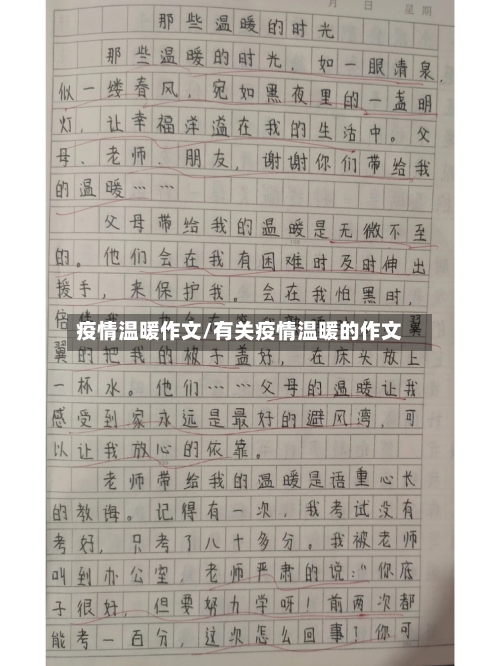 月 日 星期
那些温暖的时光
那些温暖的时光，如一眼清泉，
似一缕春风，宛如黑夜里的一盏明
灯，让幸福洋溢在我的生活中。父
母、老师、朋友，谢谢你们带给我
的温暖……
父母带给我的温暖是无微不至
的。他们会在我有困难时及时伸出
援手，来保护我。会在我怕黑时，
疫情温暖作文/有关疫情温暖的作文
翼
翼的把我的被子盖好，在床头放上
一杯水。他们……父母的温暖让我
感受到家永远是最好的避风湾，可
以让我放心的依靠。
老师带给我的温暖是语重心长
的教诲。记得有一次，我考试没有
考好，只考了八十多分。我被老师
叫到办公室，老师严肃的说：“你底
子很好，但要努力学呀！前两次都
能考一百分，这次怎么回事？你可